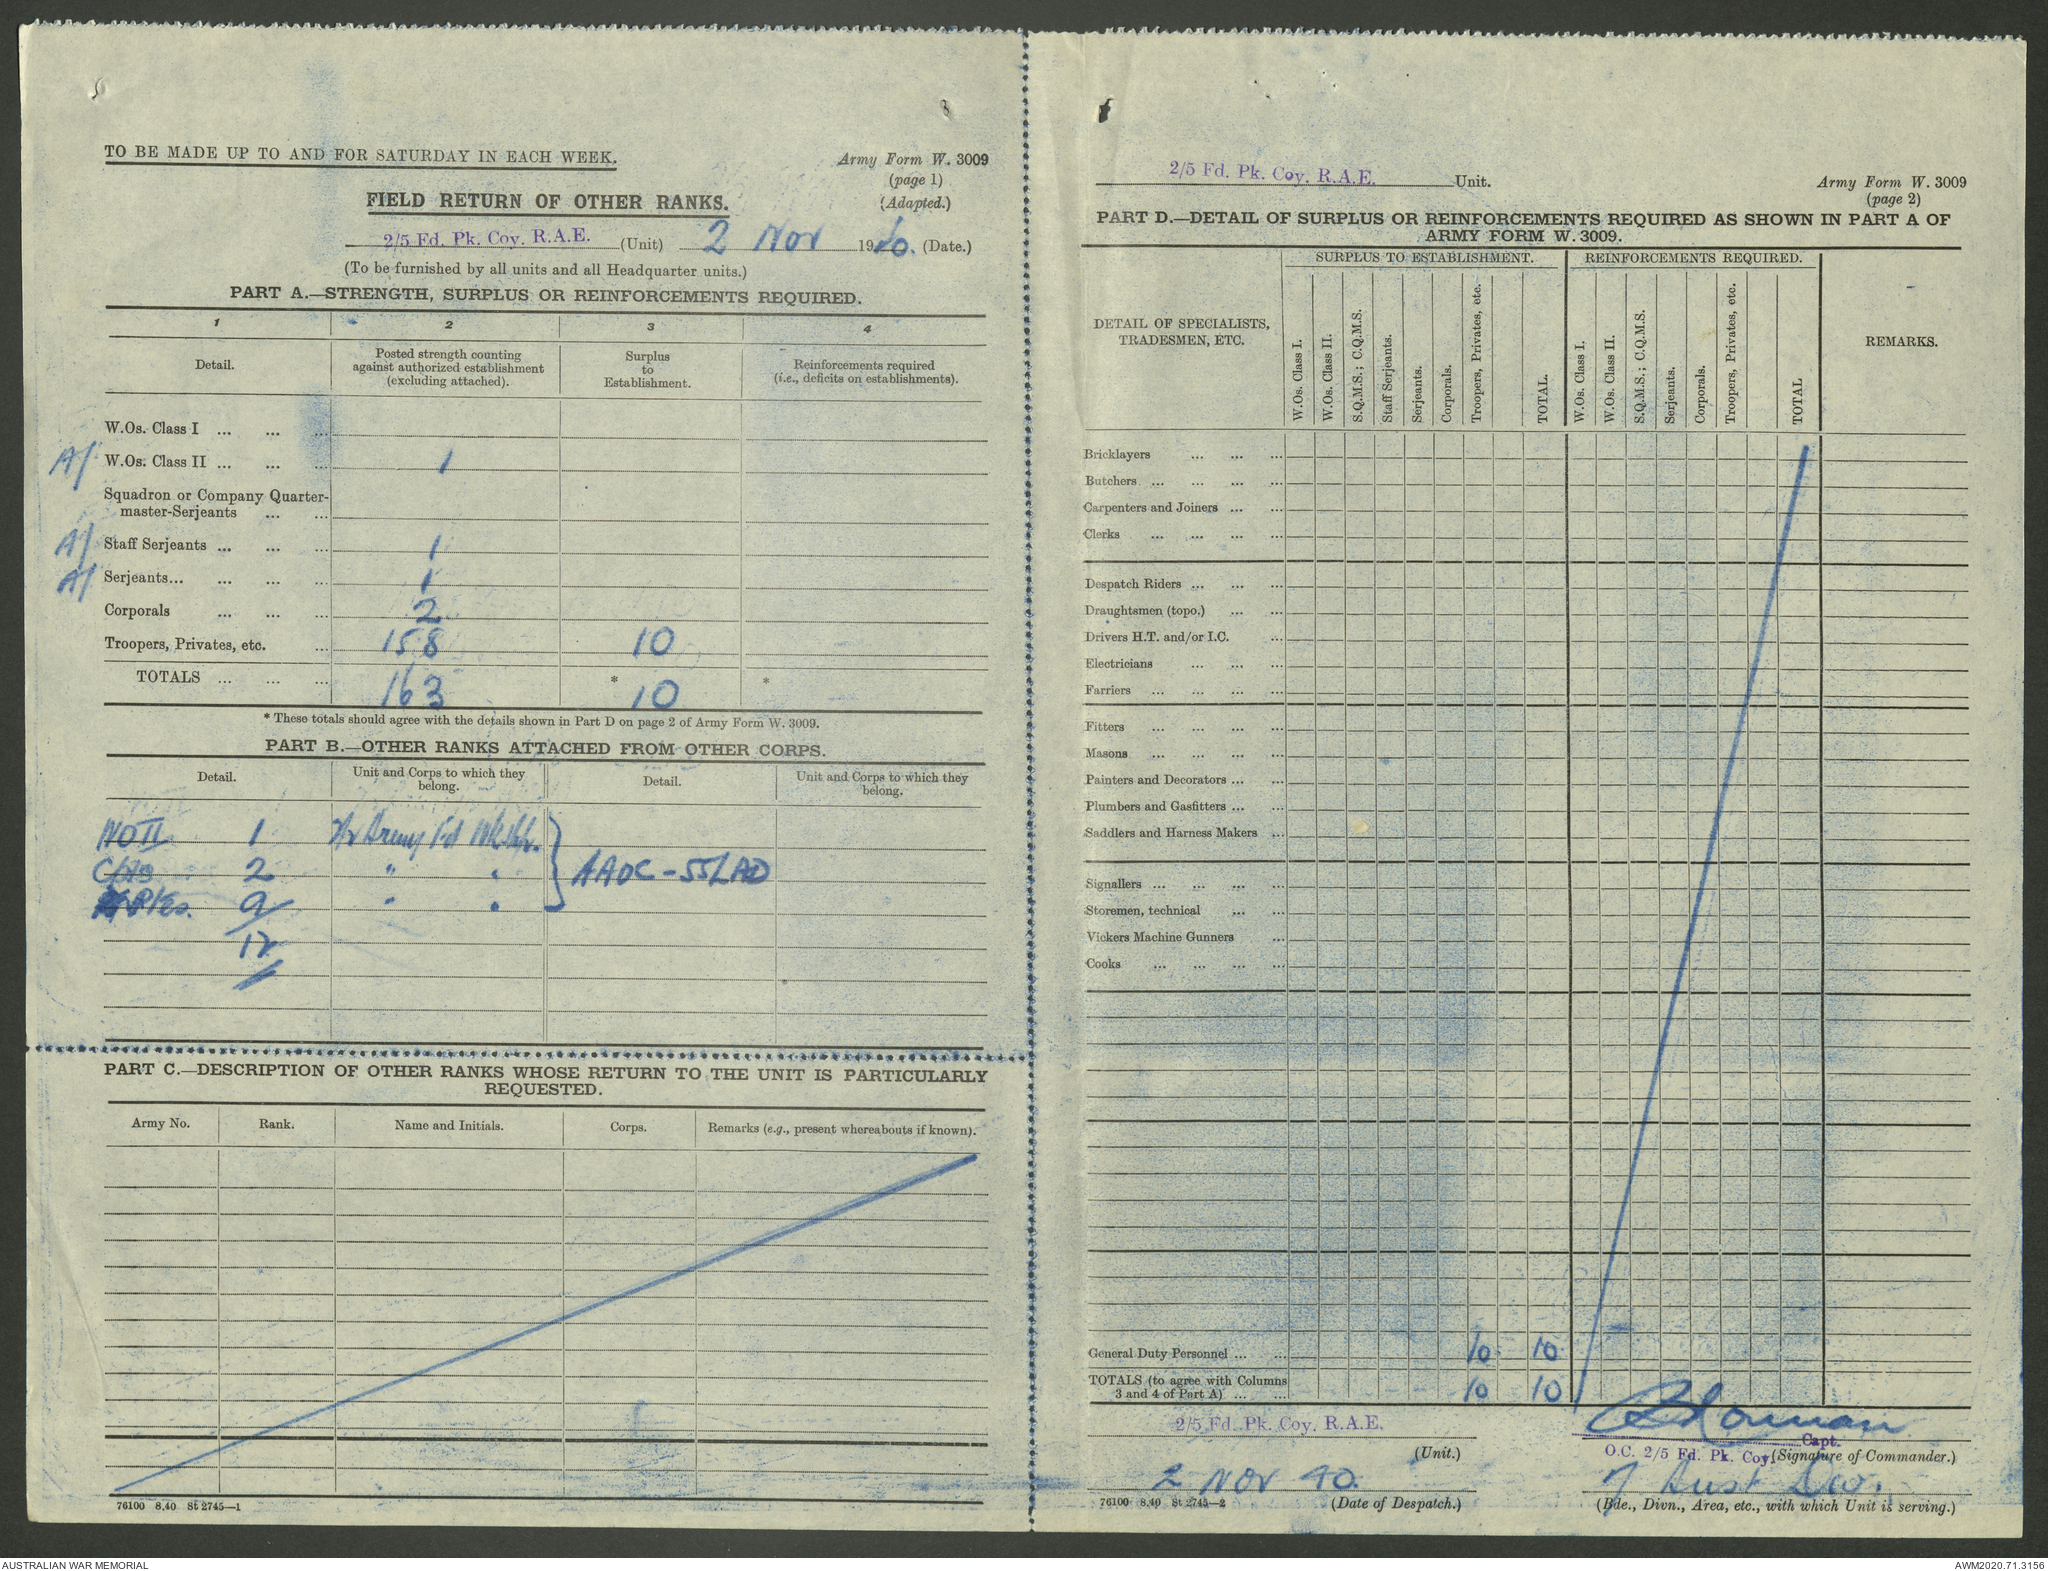 TO BE MADE UP TO AND FOR SATURDAY IN EACH WEEK.
Army Form W. 3009
(page 1)
(Adapted.)
FIELD RETURN OF OTHER RANKS.
2/5 Fd. Pk. Coy. R.A.E. (Unit) 2 Nov 1940. (Date.)
(To be furnished by all units and all Headquarter units.)
PART A.—STRENGTH, SURPLUS OR REINFORCEMENTS REQUIRED.
1 2 3 4
Detail. Posted strength counting against authorized establishment (excluding attached). Surplus to Establishment. Reinforcements required (i.e., deficits on establishments).
W.Os. Class I ... ... ...
A/ W.Os. Class II ... ... ... 1
Squadron or Company Quarter-
master-Serjeants ... ...
A/ Staff Serjeants ... ... ... 1
A/ Serjeants... ... ... ... 1
Corporals ... ... ... 2
Troopers, Privates, etc. ... 158 10
TOTALS ... ... ... 163 * 10 *
* These totals should agree with the details shown in Part D on page 2 of Army Form W. 3009.
PART B.—OTHER RANKS ATTACHED FROM OTHER CORPS.
Detail. Unit and Corps to which they belong. Detail. Unit and Corps to which they belong.
WO II 1 Army Fd
2 " " AAOC - 55 LAD
Ptes. 9 " "
12
PART C.—DESCRIPTION OF OTHER RANKS WHOSE RETURN TO THE UNIT IS PARTICULARLY
REQUESTED.
Army No. Rank. Name and Initials. Corps. Remarks (e.g., present whereabouts if known).
76100 8.40 St 2745—1
2/5 Fd. Pk. Coy. R.A.E. Unit.
Army Form W. 3009
(page 2)
PART D.—DETAIL OF SURPLUS OR REINFORCEMENTS REQUIRED AS SHOWN IN PART A OF
ARMY FORM W. 3009.
SURPLUS TO ESTABLISHMENT. REINFORCEMENTS REQUIRED.
DETAIL OF SPECIALISTS, TRADESMEN, ETC.
W.Os. Class I. W.Os. Class II. S.Q.M.S.; C.Q.M.S. Staff Serjeants. Serjeants. Corporals. Troopers, Privates, etc. TOTAL.
W.Os. Class I. W.Os. Class II. S.Q.M.S.; C.Q.M.S. Serjeants. Corporals. Troopers, Privates, etc. TOTAL
REMARKS.
Bricklayers ... ... ...
Butchers ... ... ... ...
Carpenters and Joiners ... ...
Clerks ... ... ... ...
Despatch Riders ... ... ...
Draughtsmen (topo.) ... ...
Drivers H.T. and/or I.C. ...
Electricians ... ... ...
Farriers ... ... ... ...
Fitters ... ... ... ...
Masons ... ... ... ...
Painters and Decorators ... ...
Plumbers and Gasfitters ... ...
Saddlers and Harness Makers ...
Signallers ... ... ... ...
Storemen, technical ... ...
Vickers Machine Gunners ...
Cooks ... ... ... ...
General Duty Personnel ... ... 10 10
TOTALS (to agree with Columns
3 and 4 of Part A) ... ... 10 10
2/5 Fd. Pk. Coy. R.A.E.
(Unit.)
Capt.
O.C. 2/5 Fd. Pk. Coy. (Signature of Commander.)
2 Nov 40. 7 Aust Div.
76100 8.40 St 2745—2 (Date of Despatch.) (Bde., Divn., Area, etc., with which Unit is serving.)
AUSTRALIAN WAR MEMORIAL
AWM2020.71.3156